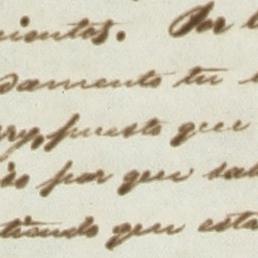 mientos. Por l
damento tu
rry, puesto que
so por que sab
tiendo que esta